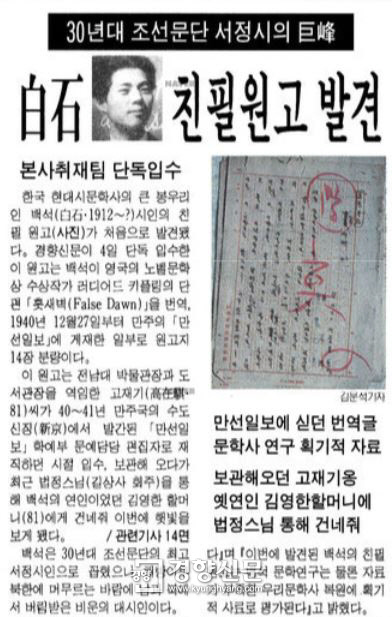 30년대 조선문단 서정시의 巨峰
白石 친필원고 발견
본사취재팀 단독입수
한국 현대시문학사의 큰 봉우리
인 백석(白石·1912~?)시인의 친
필 원고(사진)가 처음으로 발견됐
다. 경향신문이 4일 단독 입수한
이 원고는 백석이 영국의 노벨문학
상 수상작가 러디어드 키플링의 단
편 「헛새벽(False Dawn)」을 번역,
1940년 12월27일부터 만주의 「만
선일보」에 게재한 일부로 원고지
14장 분량이다.
이 원고는 전남대 박물관장과 도
서관장을 역임한 고재기(高在騏·
81)씨가 40~41년 만주국의 수도
신징(新京)에서 발간된 「만선일
보」 학예부 문예담당 편집자로 재
직하던 시절 입수, 보관해 오다가
최근 법정스님(길상사 회주)을 통
해 백석의 연인이었던 김영한 할머
니(81)에게 건네줘 이번에 햇빛을
보게 됐다. /관련기사 14면
백석은 30년대 조선문단의 최고
서정시인으로 꼽혔으나
북한에 머무르는 바람에
서 버림받은 비운의 대시인이다.
김문석기자
만선일보에 싣던 번역글
문학사 연구 획기적 자료
보관해오던 고재기옹
옛연인 김영한할머니에
법정스님 통해 건네줘
다」며 「이번에 발견된 백석의 친필
문학연구는 물론 자료
우리문학사 복원에 획기
적 사료로 평가된다」고 밝혔다.
경향신문
www.kyunghyang.com